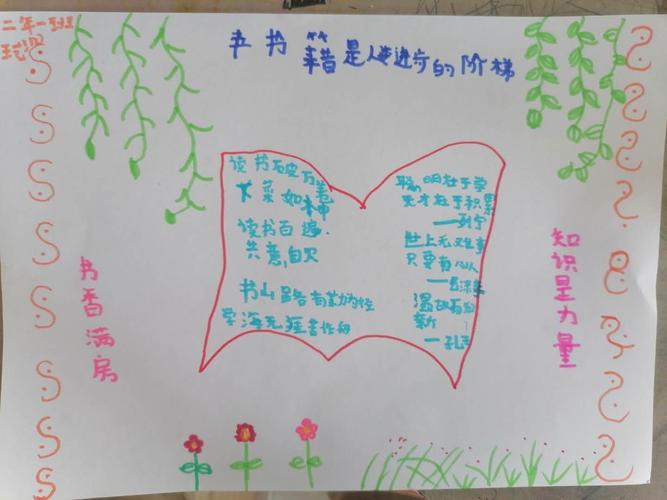 二年一班
书籍是人类进步的阶梯
读书破万卷
下菜如神
读书百遍.
其意自见
书山路有勤为径
学海无涯苦作舟
聪明在于学
天才在于积累
——列宁
世上无难事
只要有心人
温故而知
新
—孔子
书香满房
知识是力量